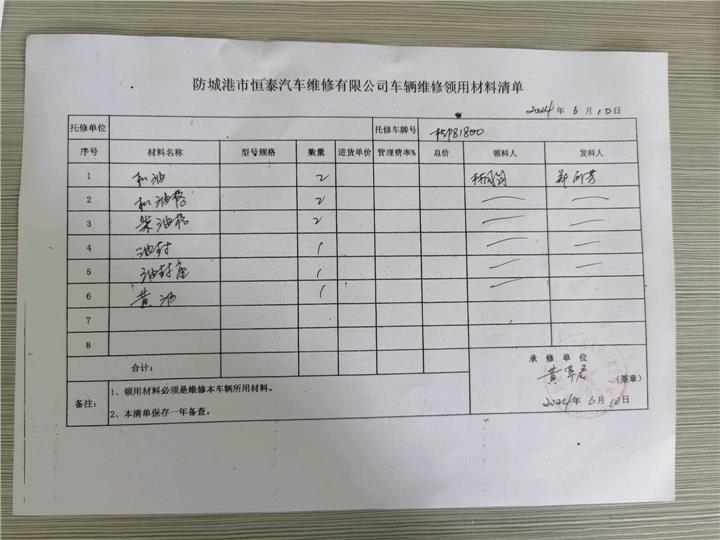 防城港市恒泰汽车维修有限公司车辆维修领用材料清单
2024年 6月10日
托修单位 托修车牌号
序号 材料名称 型号规格 数量 进货单价 管理费率% 总价 领料人 发料人
1 机油 2
2 机油格 2
3 柴油格 2
4 油封 1
5 油封座 1
6 黄油 1
7
8
合计:
承修单位
(签章)
2024年 6月10日
备注:
1、领用材料必须是维修本车辆所用材料。
2、本清单保存一年备查。